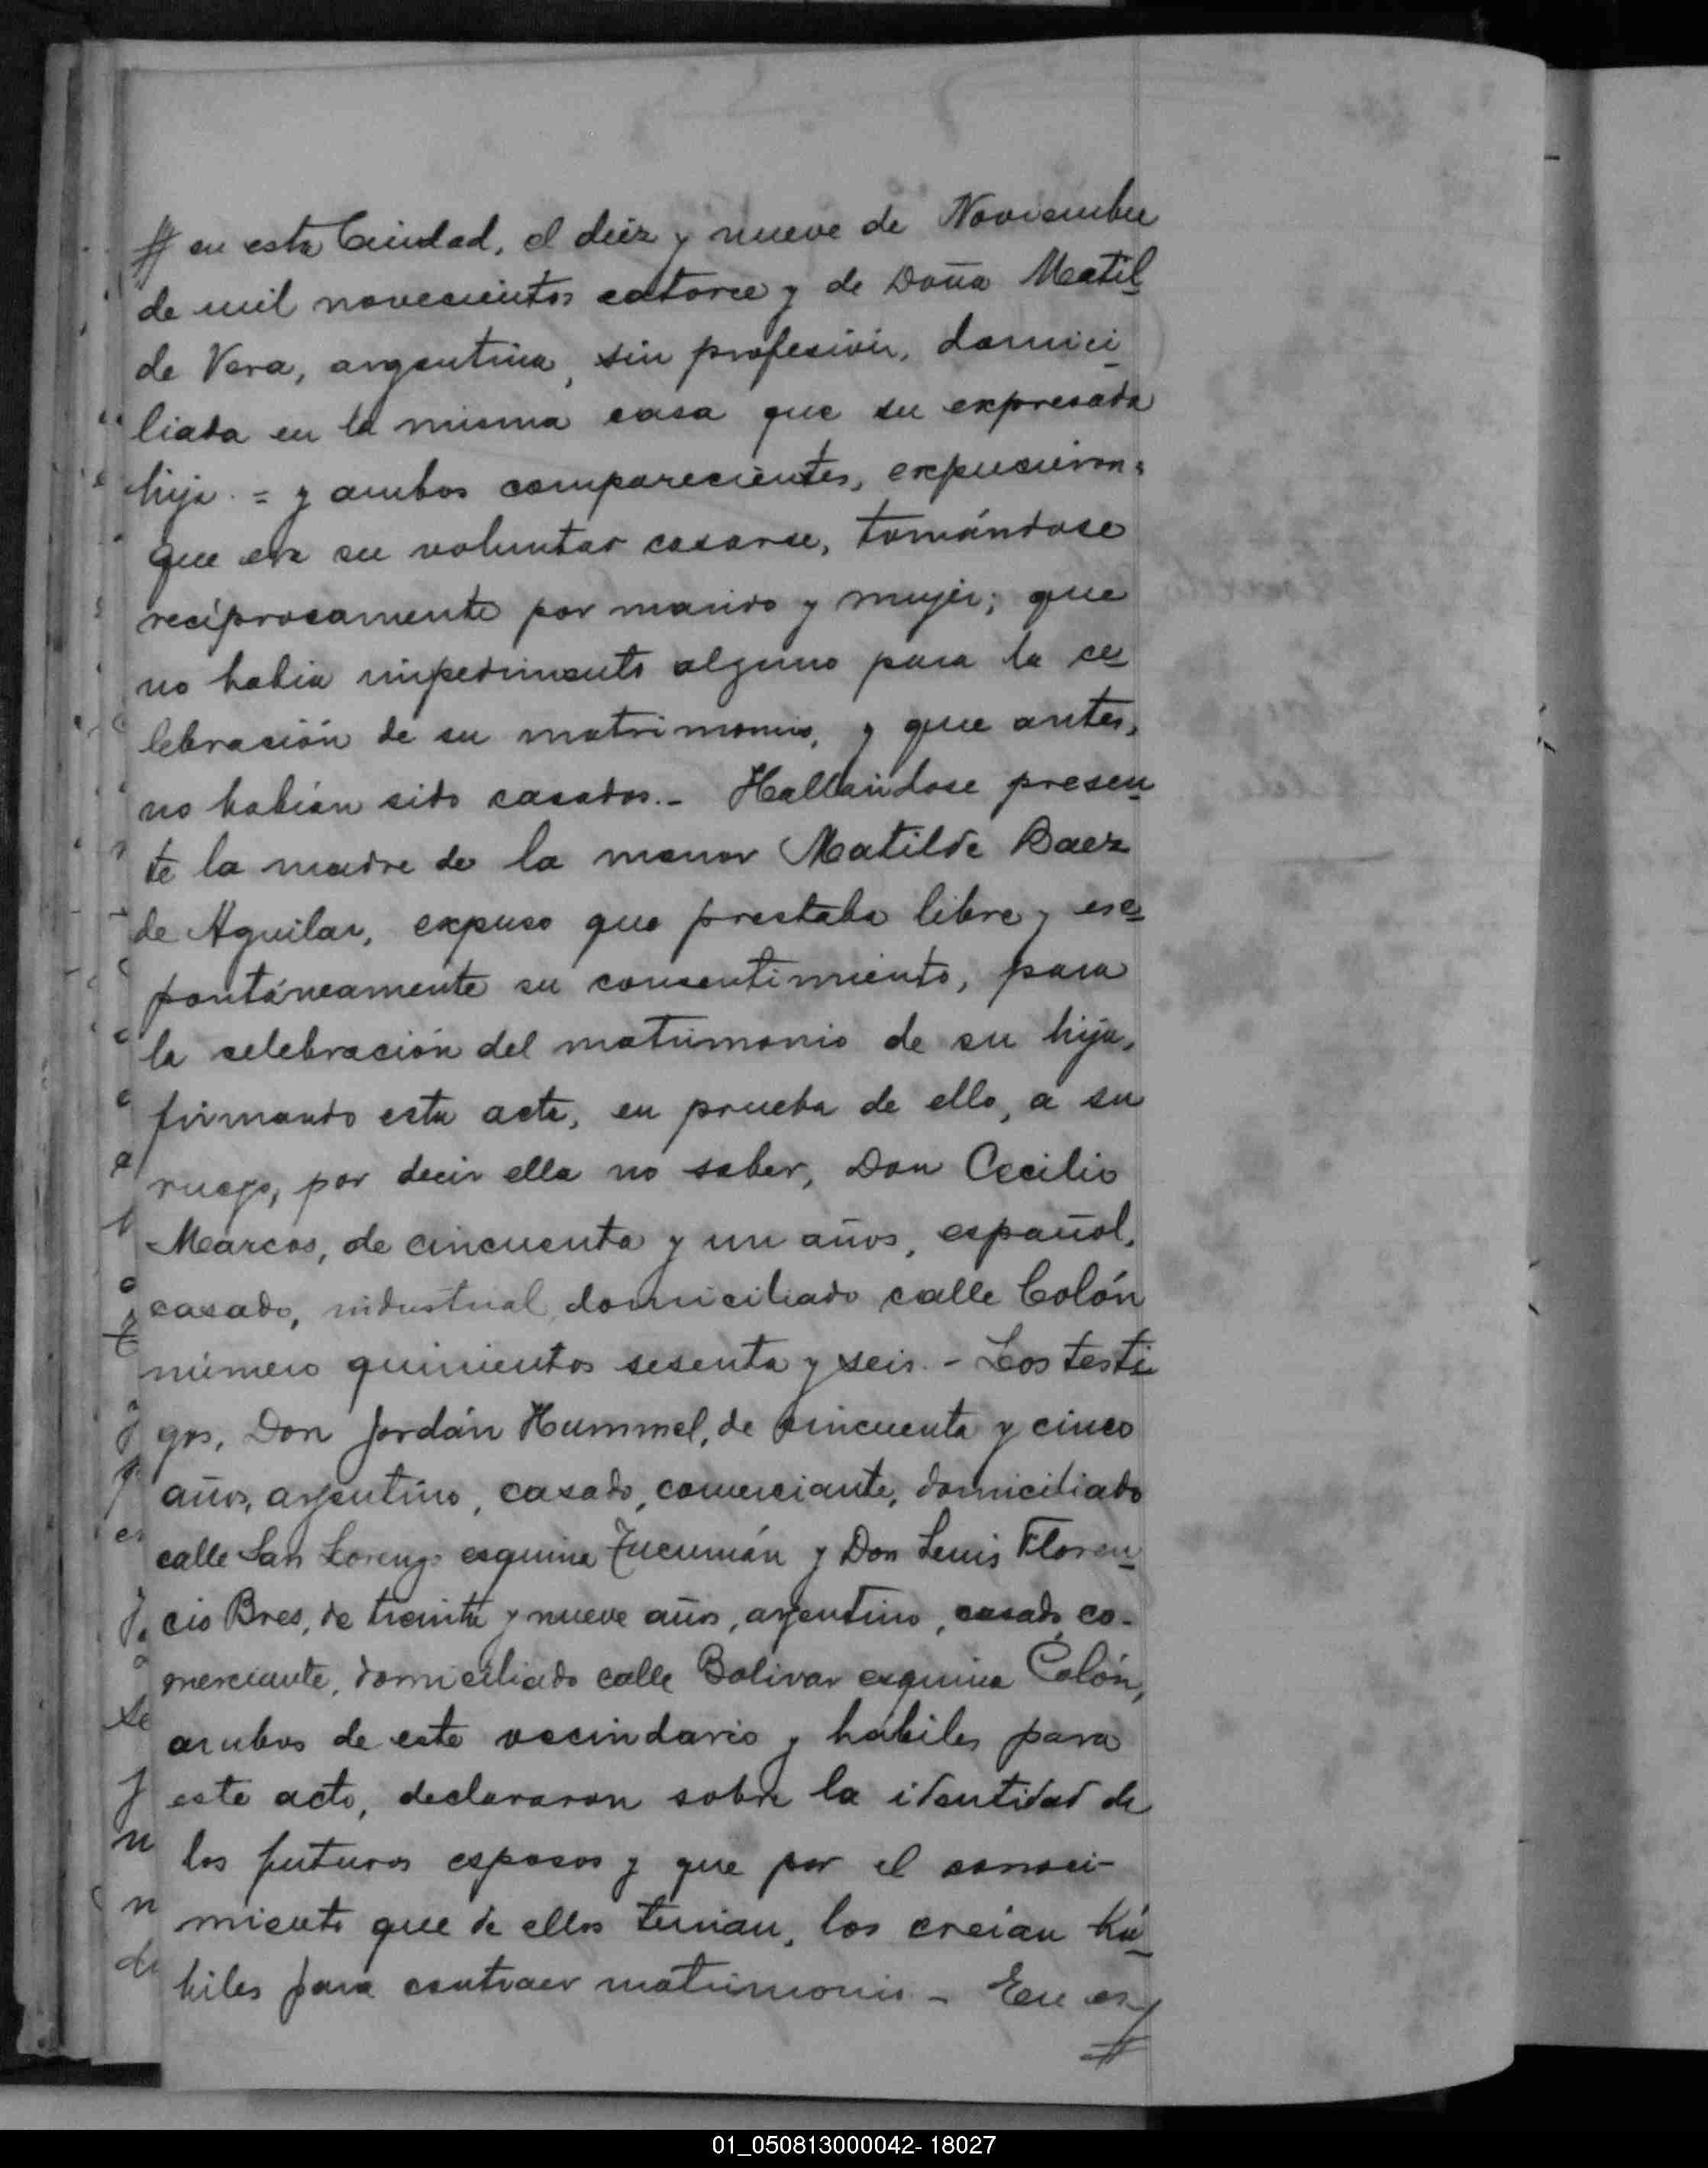 # en esta Ciudad, el diez y nueve de Noviembre
de mil novecientos catorce y de Doña Matil
de Vera, argentina, sin profesión, domici
liada en la misma casa que su expresada
hija. = y ambos comparecientes, expusieron:
que era su voluntad casarse, tomándose
recíprocamente por marido y mujer; que
no habia impedimento alguno para la ce
lebración de su matrimonio, y que antes,
no habían sido casados.- Hallándose presen
te la madre de la menor Matilde Baez
de Aguilar, expuso que prestaba libre y es
pontáneamente su consentimiento, para
la celebración del matrimonio de su hija,
firmando esta acta, en prueba de ello, a su
ruego, por decir ella no saber, Don Cecilio
Marcos, de cincuenta y un años, español,
casado, industrial, domiciliado calle Colón
número quinientos sesenta y seis.- Los testi
gos, Don Jordán Hummel, de cincuenta y cinco
años, argentino, casado, comerciante, domiciliado
calle San Lorenzo esquina Tucumán y Don Luis Floren
cio Bres, de treinta y nueve años, argentino, casado, co-
merciante, domiciliado calle Bolivar esquina Colón,
ambos de este vecindario y hábiles para
este acto, declararon sobre la identidad de
los futuros esposos y que por el conoci-
miento que de ellos tenian, los creian há
biles para contraer matrimonio.- En es
#
01_050813000042- 18027